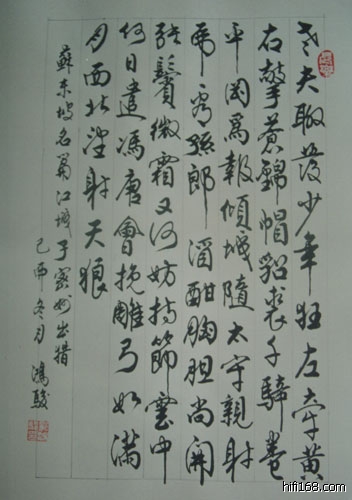 老夫聊發少年狂左牽黃
右擎蒼錦帽貂裘千騎卷
平岡爲報傾城隨太守親射
虎看孫郎酒酣胸胆尚開
張鬢微霜又何妨持節雲中
何日遣馮唐會挽雕弓如滿
月西北望射天狼
蘇東坡名篇江城子密州出猎
己卯冬月 鴻駿
hifi168.com